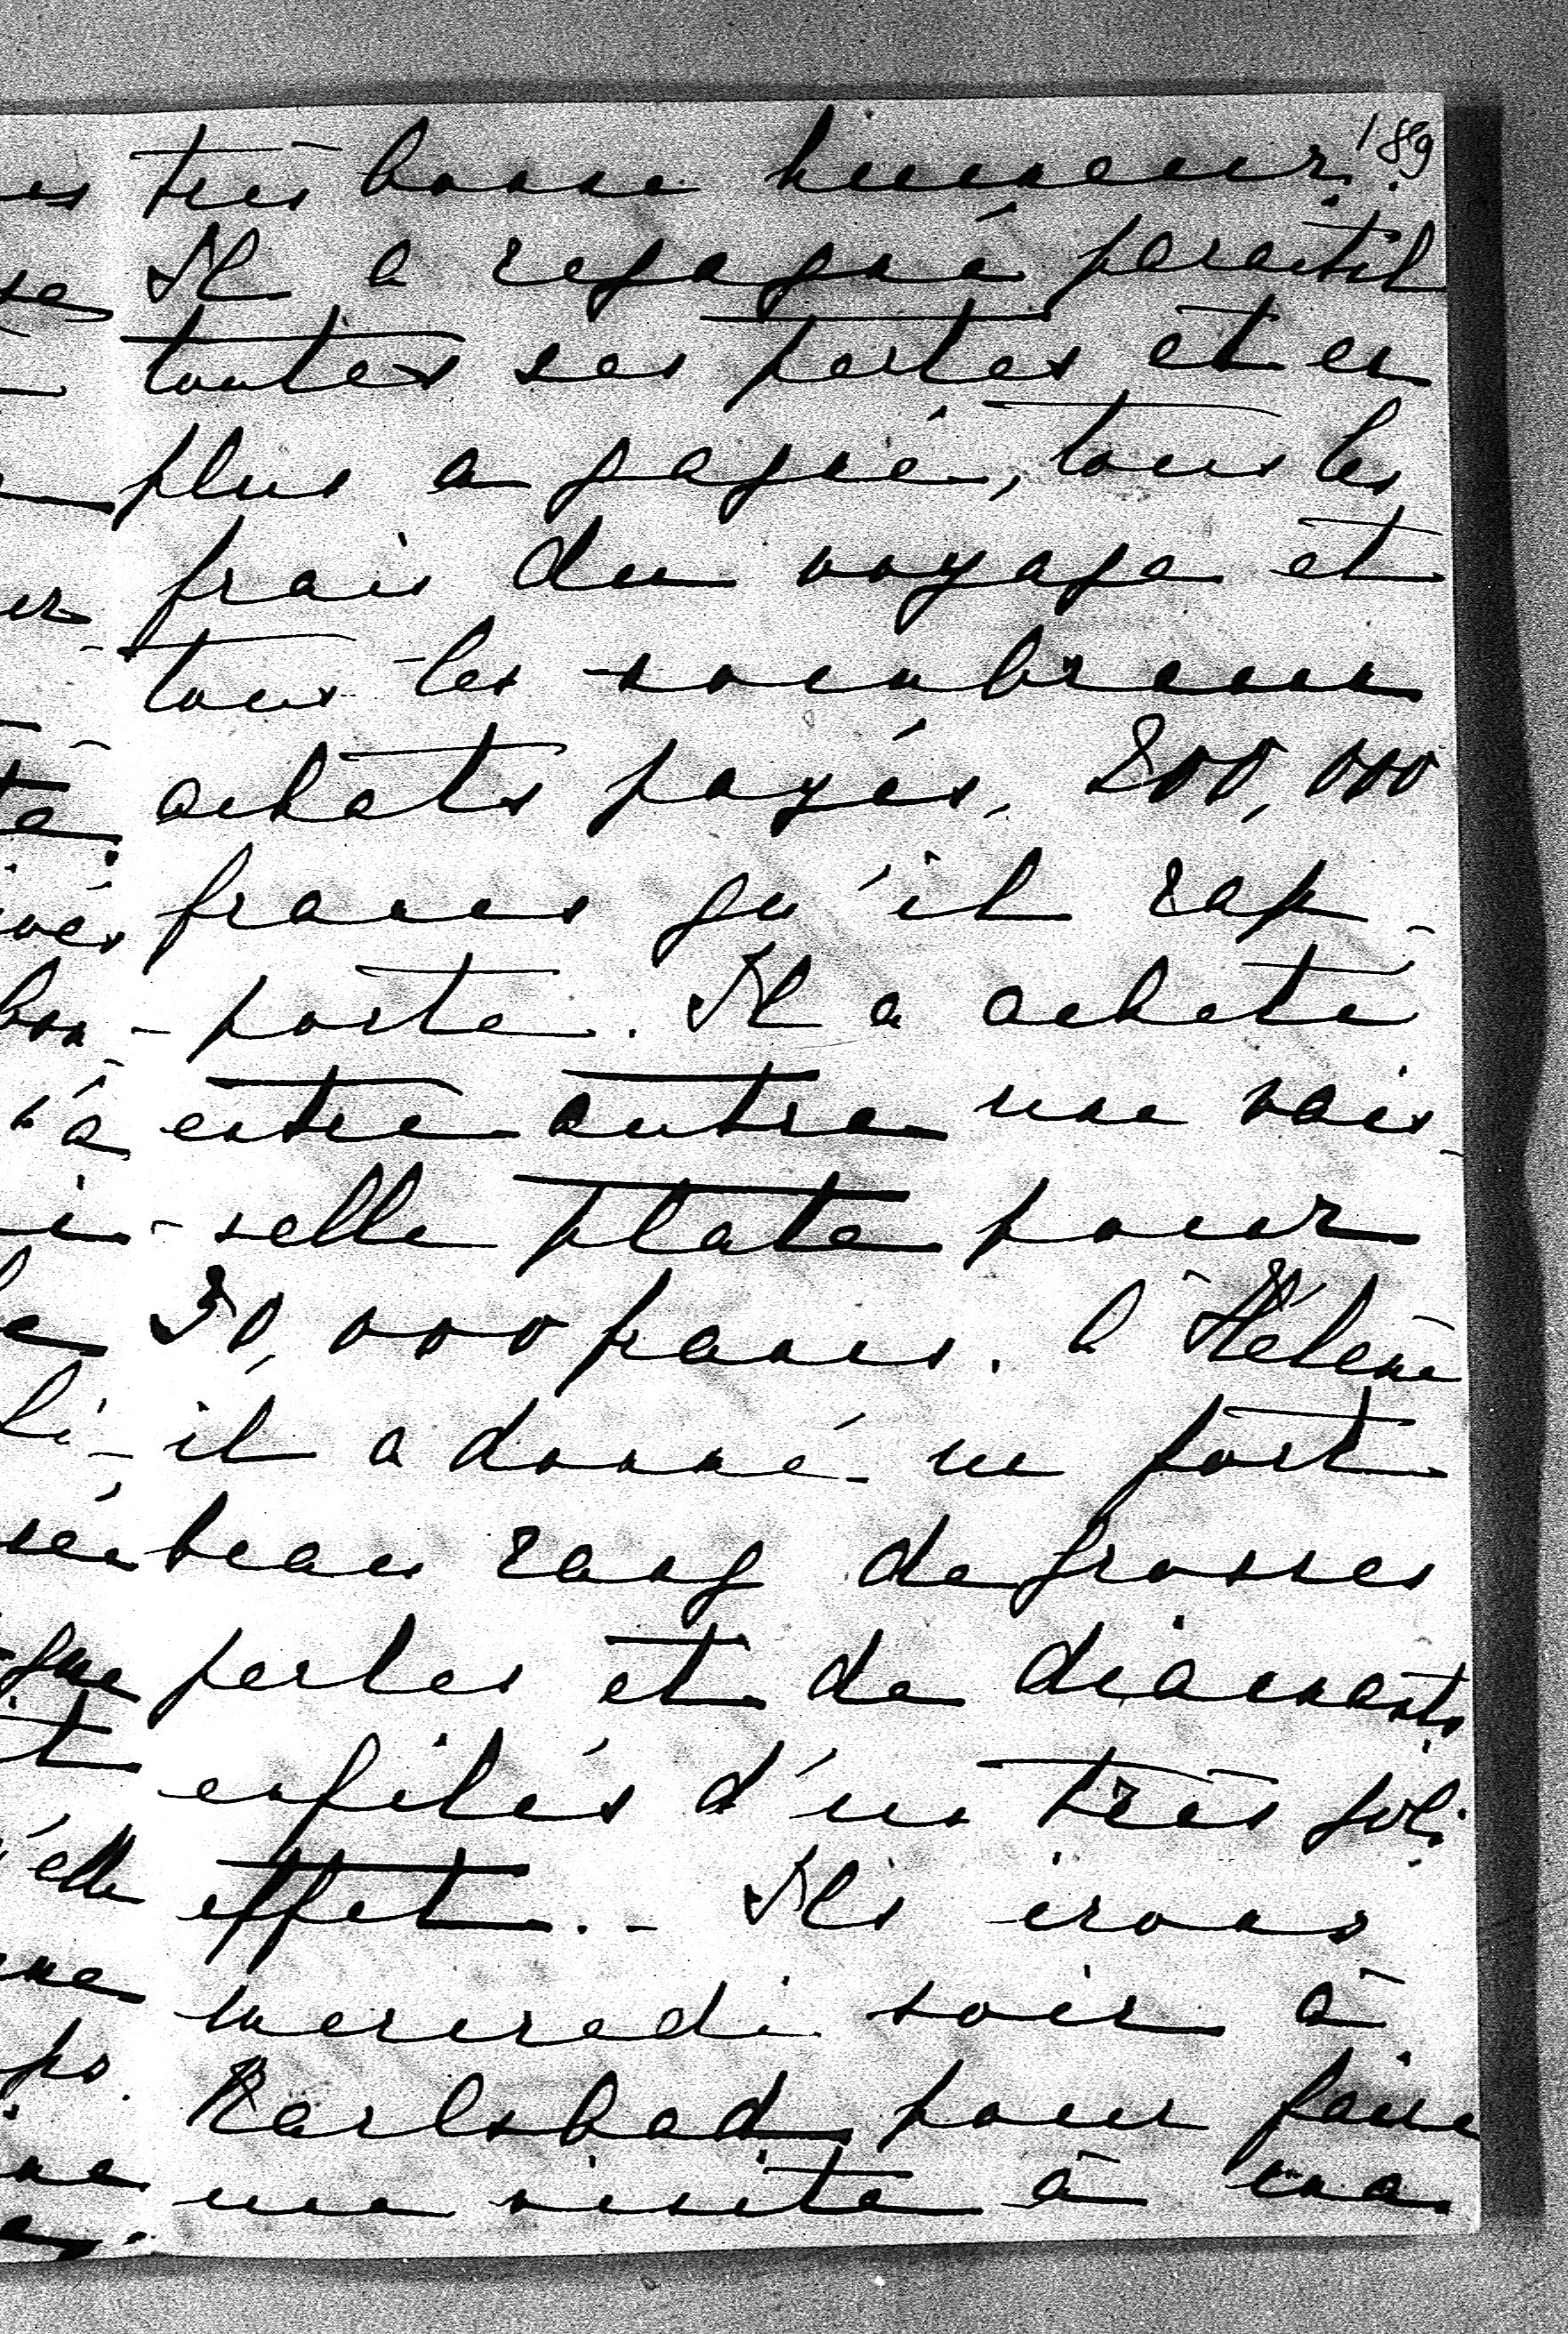 189
très bonne humeur.
Il a regagné paraitil
toutes ses pertes et en
plus a gagné, tous les
frais du voyage et
tous les nombreux
achats payés, 200,000
francs qu'il rap-
-porte. Il a acheté
entre autre une vais-
-selle plate pour
30,000 francs. à Hélène
il a donné un fort
beau rang de grosses
perles et de diamants
enfilés d'un très joli
effet.- Ils irons
mercredi soir à
Karlsbad pour faire
une visite à ma